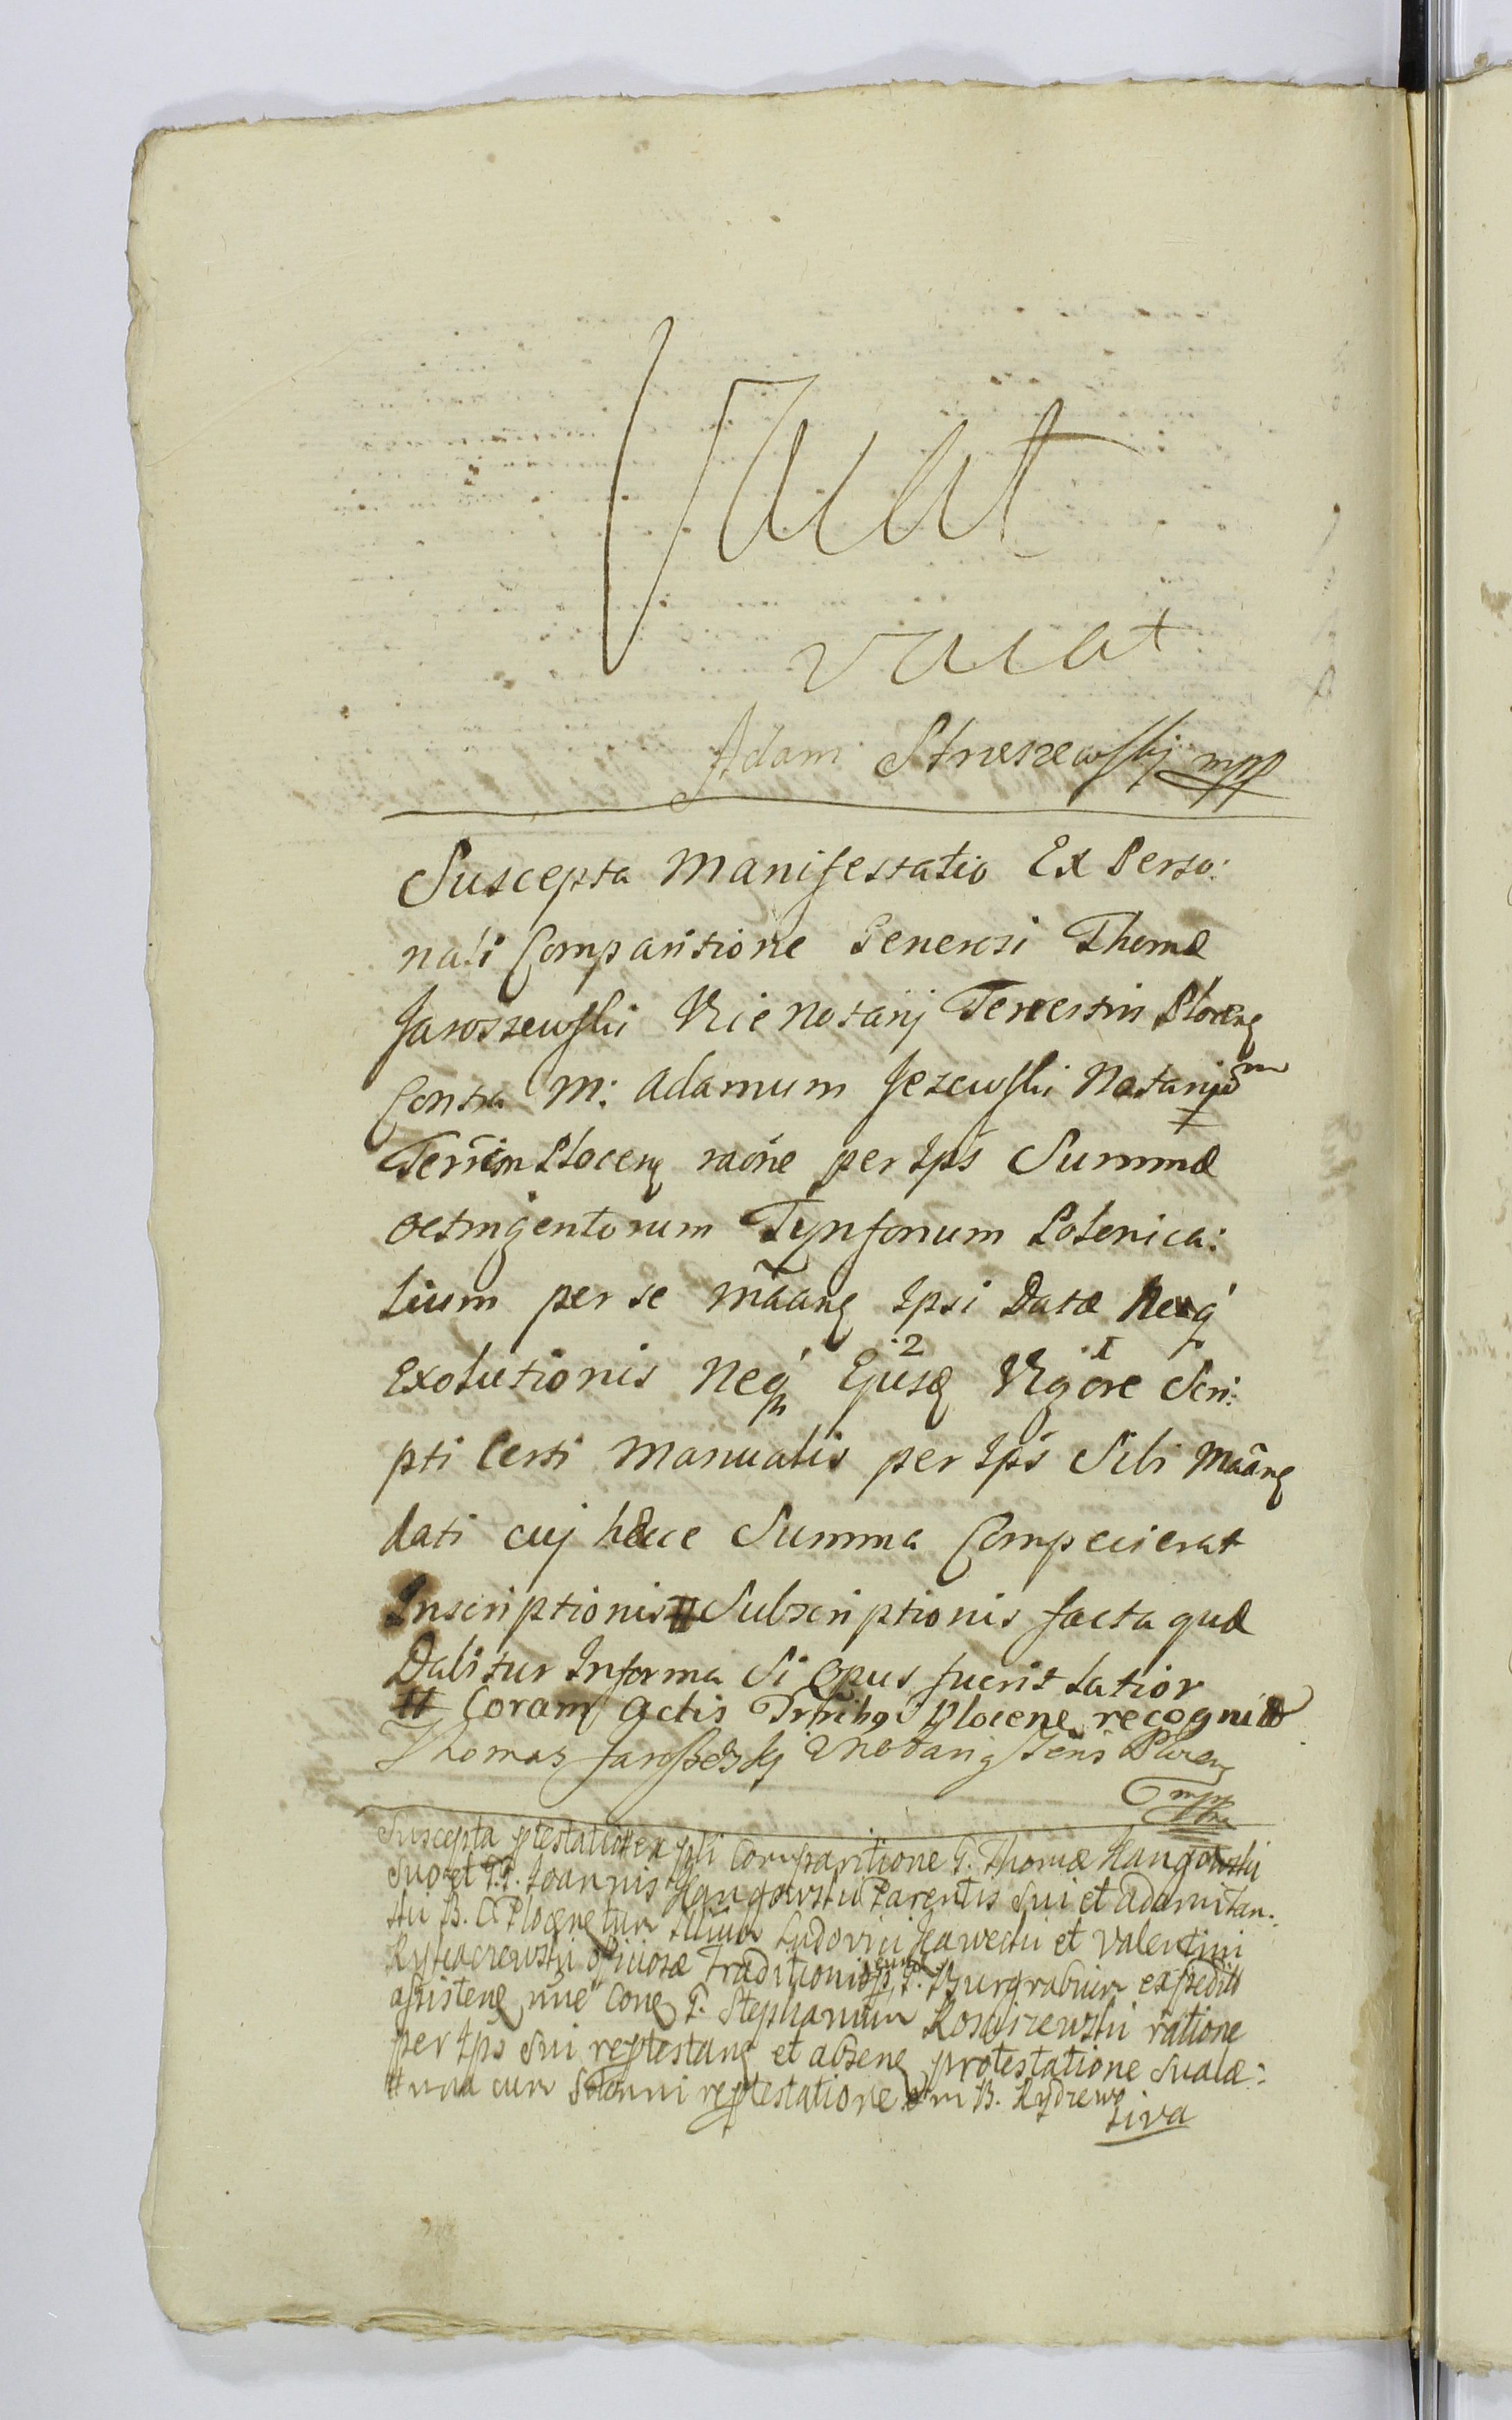 Vacat
vacat
Adam Strzeszewskj mpp
Suscepta Manifestatio Ex Perso:
nali Comparitione Generosi Thomæ
Jaroszewski Vice Notarij Terrestris Plocen
Contra M: Adamum Jezewski Notarium
Terrem Plocen raone per Ips Summæ
octingentorum Tynforum Polonica:
lium per se maan Ipsi Datæ Neq
Exolutionis Neq Ejusd Vigore Scri:
pti Certi Manualis per Ips Sibi Maan
dati cuj hæce Summa Compecierat
Inscriptionis # Subscriptionis facta quæ
Dabitur In forma Si Opus fuerit latior
# Coram Actis Plocen recognitæ
Thomas Jaroszewskj VNotarig Teris Plocen
mpp
Suscepta ptestatio ex psli Comparitione G. Thomæ Kangowski
suo et G.G. Joannis Kangowski Parentis sui et Adami Lan:
ski B. C Plocen tum Ludovici et Valentini
officiosæ traditionis p. G. Burgrabium expedit
assisten nne Con G. Stephanum Rosciszewski ratione
per Ips sui reptestan et absen protestatione sua læ:
# una cum solenni reptestatione
siva